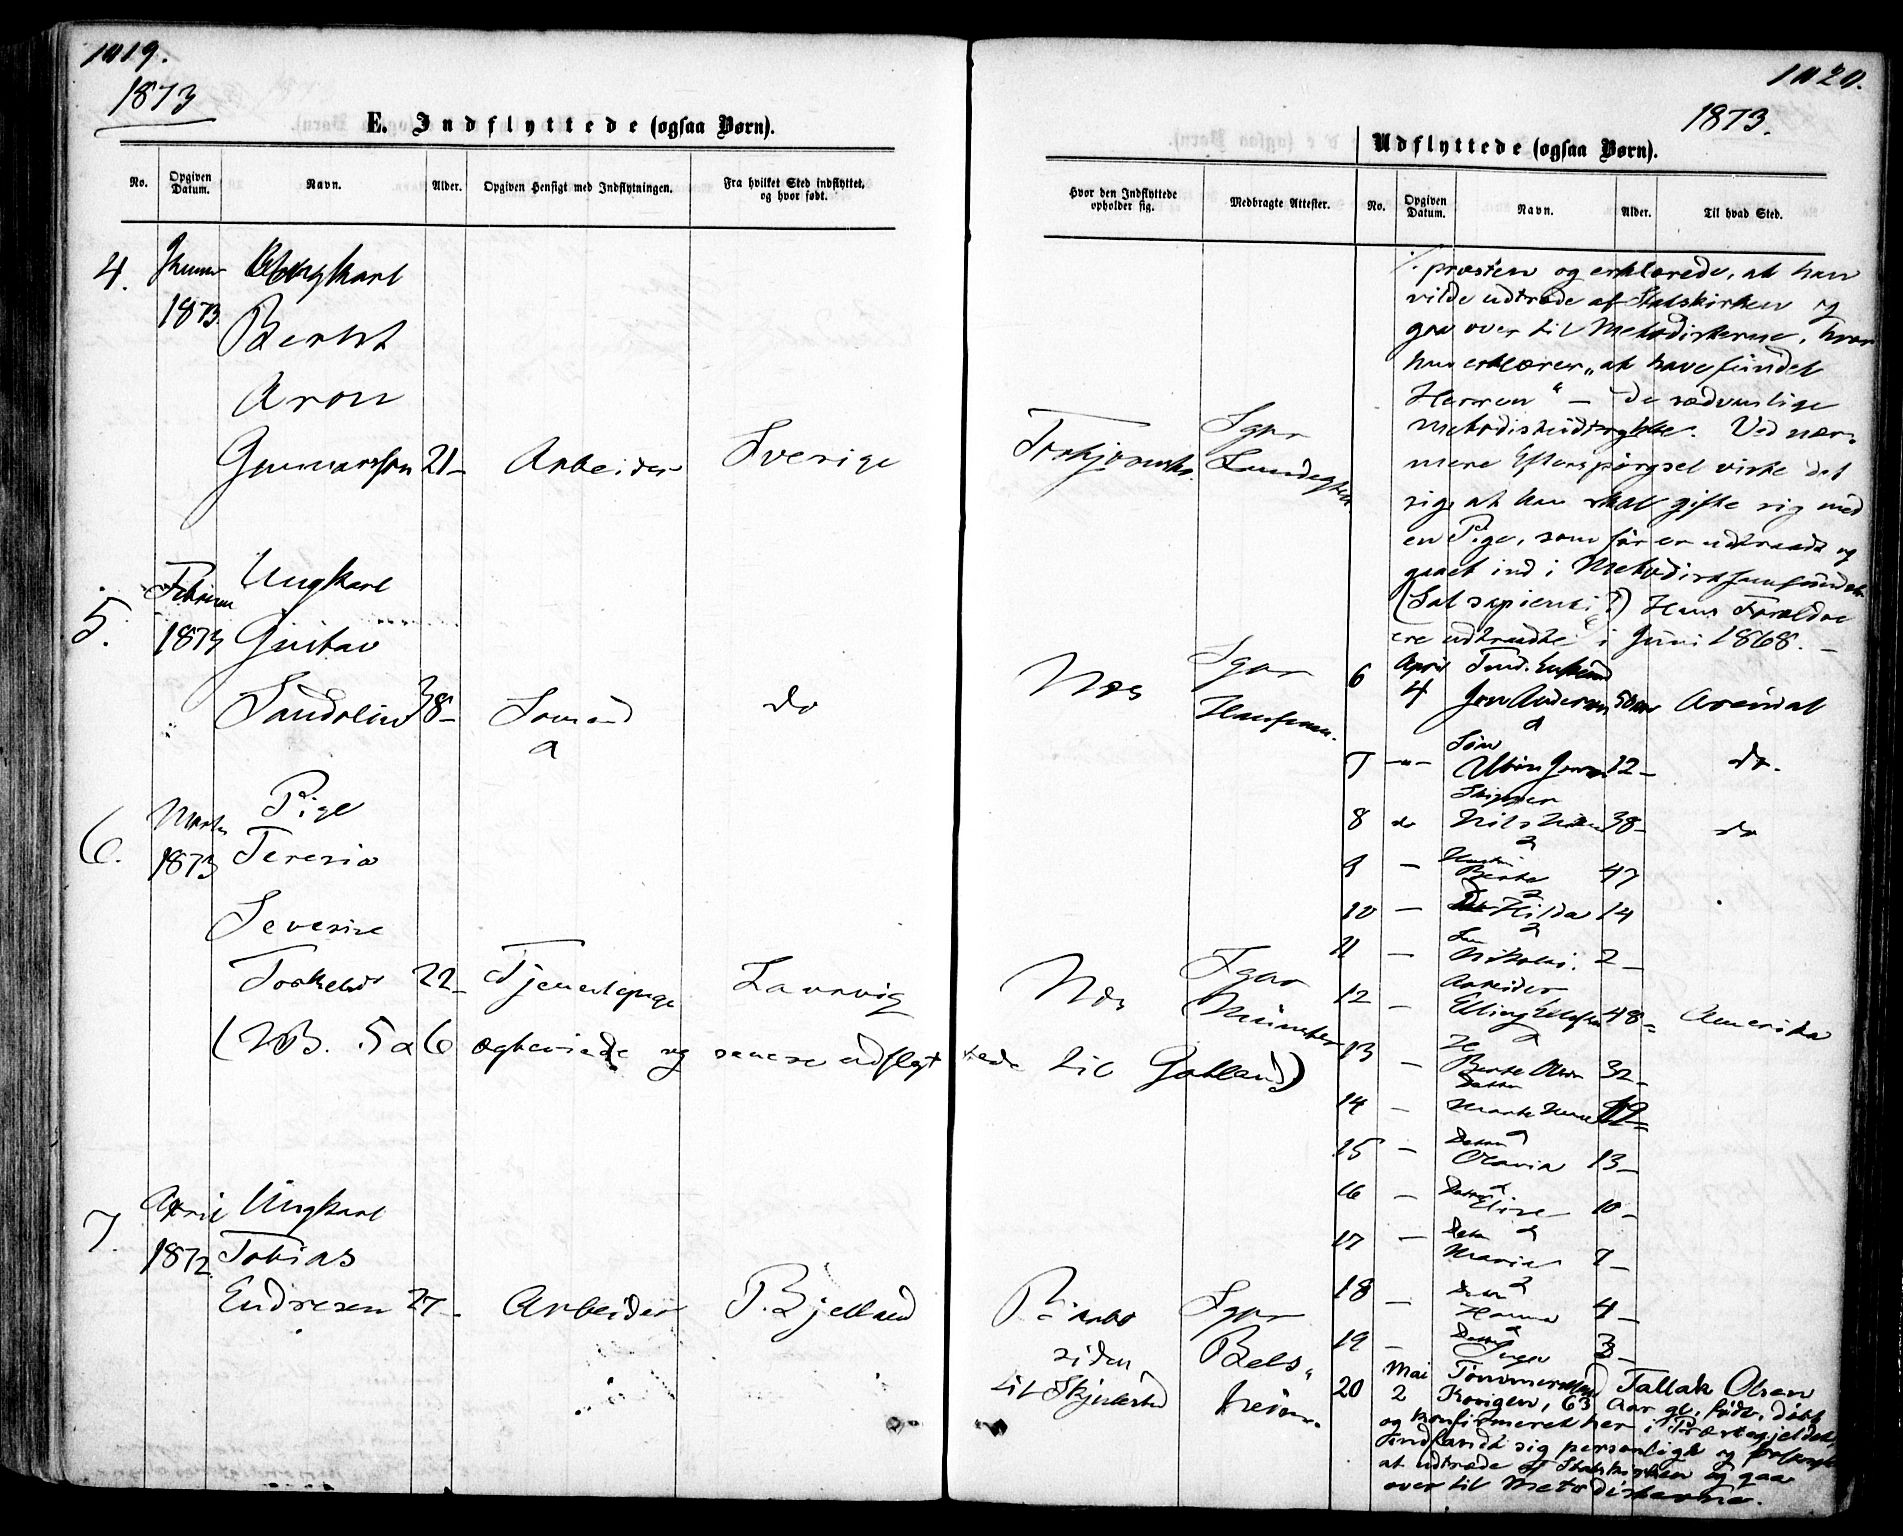 1019.
1873
E. Indflyttede (ogsaa Børn).
No.
Opgiven Datum.
Navn.
Alder.
Opgiven Hensigt med Indflytningen.
Fra hvilket Sted indflyttet, og hvor født.
4.
1873
Ungkarl
Berht
Aron
Gunnarsson 21- Arbeider Sverige
5.
Februar
1873
Ungkarl
Gustav
Sandelin 38- Sømand do
6.
Marts
1873
Pige
Teresia
Severine
Torkelsd 22- Tjenestepige Laurvig
(NB. 5 a 6 ægteviede og senere udflyt
7.
April
1872
Ungkarl
Tobias
Endresen 27- Arbeider P. Bjelland
1020.
1873.
Udflyttede (ogsaa Børn).
Hvor den Indflyttede opholder sig.
Medbragte Attester.
No.
Opgiven Datum.
Navn.
Alder.
Til hvad Sted.
Sgpr
Næs
Sgpr
Næs
Sgpr
Münster
tede til Gotland)
siden
Sgpr
præsten og erklærede, at han
vilde udtræde af Statskirken og
gaa over til Metodisterne, hvor
han erklærer „at have fundet
Herren" – de sædvanlige
metodistudtrykke. Ved nær-
mere Efterspørgsel viste det
sig, at han skal gifte sig med
en Pige, som før er udtraadt og
gaaet ind i Metodistsamfundet
(Sat sapienti!) Hans Forældre
ere udtraadte i Juni 1868. –
6 April 4 Jens Andersen 50 Arendal
7 -"- Søn 12- do.
8 do Skipper Nils 38- do
9 – Hustru Berte 47
10 – Hilda 14
11 – Søn Nikolai. 2-
12 – Arbeider Elling 48- Amerika
13 – Berte Olsen 32-
14 – Datter
15 – Datter Olavia 13-
16 – Datter Elise 10-
17 – Datter Maria 7-
18 – Hanna 4-
19 – Datter Inger 3-
20 Mai 2 Tømmermand Tallak Olsen
63 Aar gl. født, døbt
og konfirmeret her i Præstegjeldet,
indfandt sig personligt og
at udtræde af Statskirken og gaa
over til Metodisterne.